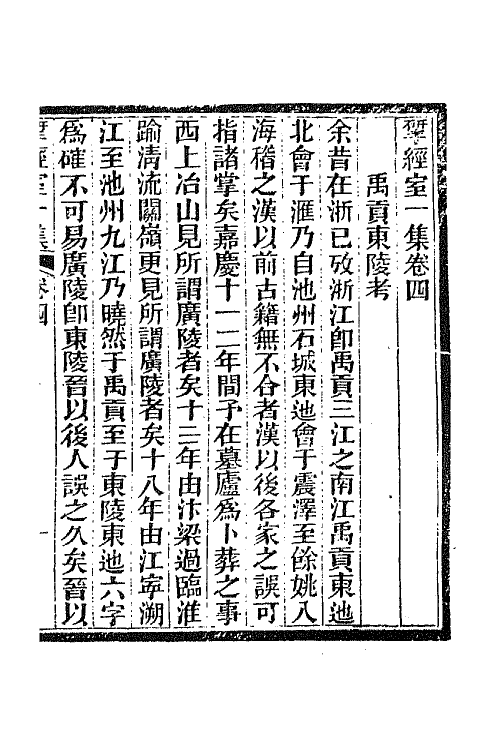 揅經室一集卷四
禹貢東陵考
余昔在浙已攷浙江卽禹貢三江之南江禹貢東迆
北會于滙乃自池州石城東迆會于震澤至餘姚入
海稽之漢以前古籍無不合者漢以後各家之誤可
指諸掌矣嘉慶十一二年間予在墓廬爲卜葬之事
西上冶山見所謂廣陵者矣十三年由汴梁過臨淮
踰淸流關嶺更見所謂廣陵者矣十八年由江寧溯
江至池州九江乃曉然于禹貢至于東陵東迆六字
爲確不可易廣陵卽東陵晉以後人誤之久矣晉以
揅經室一集 卷四